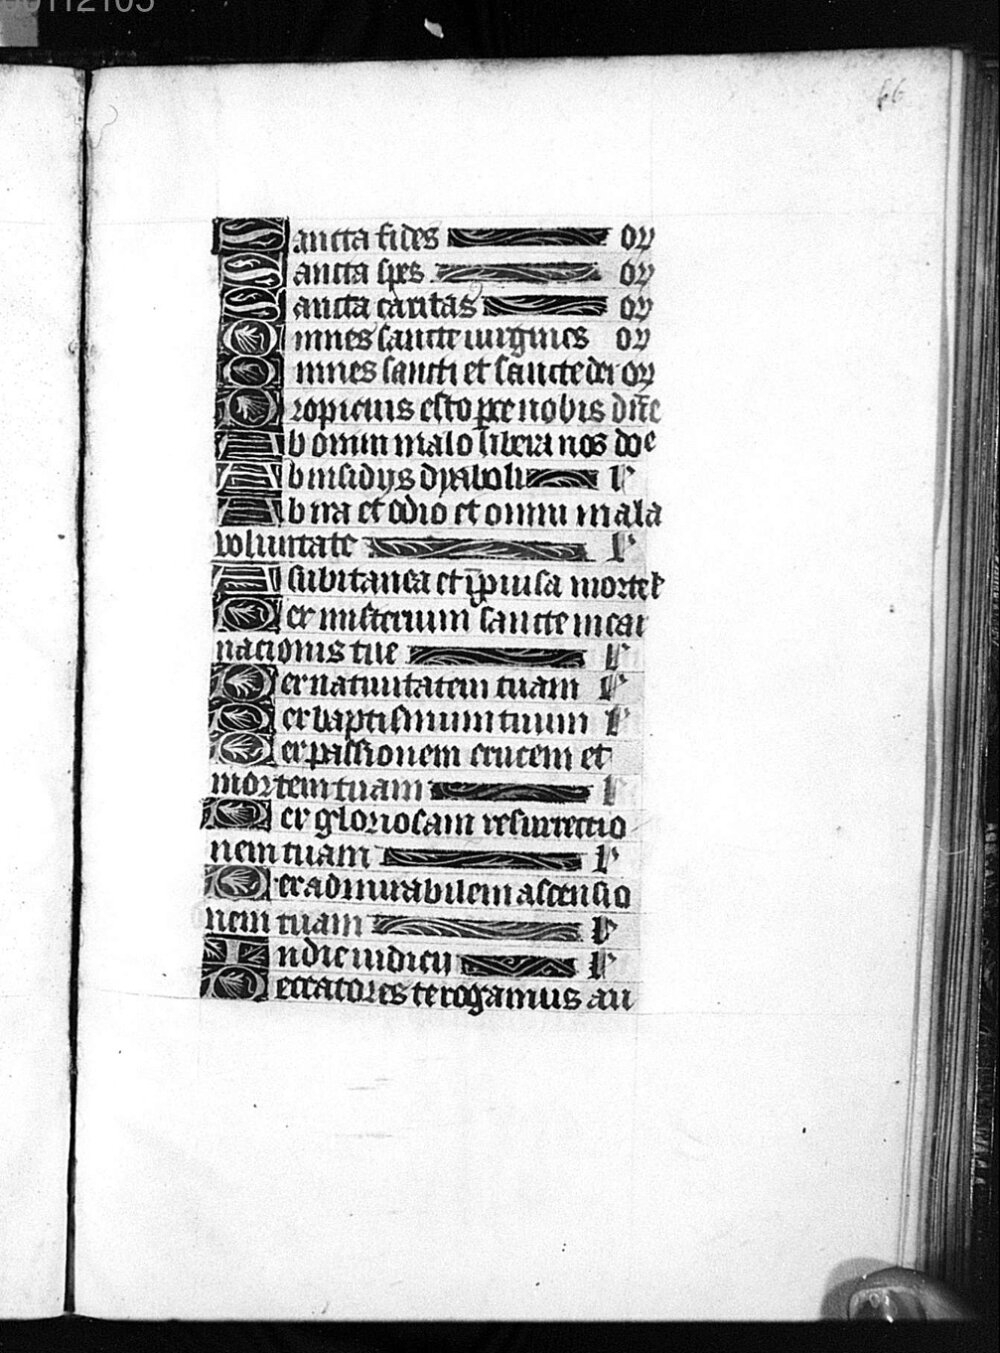 00112105
66
Sancta fides or
Sancta spes or
Sancta caritas or
Omnes sancte uirgines or
Omnes sancti et sancte dei or
Propicius esto parce nobis dñe
Ab omni malo libera nos dñe
Ab insidijs dyaboli l
Ab ira et odio et omni mala
voluntate l
A subitanea et ĩprouisa morte l
Per misterium sancte incar
nacionis tue l
Per natiuitatem tuam l
Per baptismum tuum l
Per passionem crucem et
mortem tuam l
Per gloriosam resurrectio
nem tuam l
Per admirabilem ascensio
nem tuam l
In die iudicij l
Peccatores te rogamus au